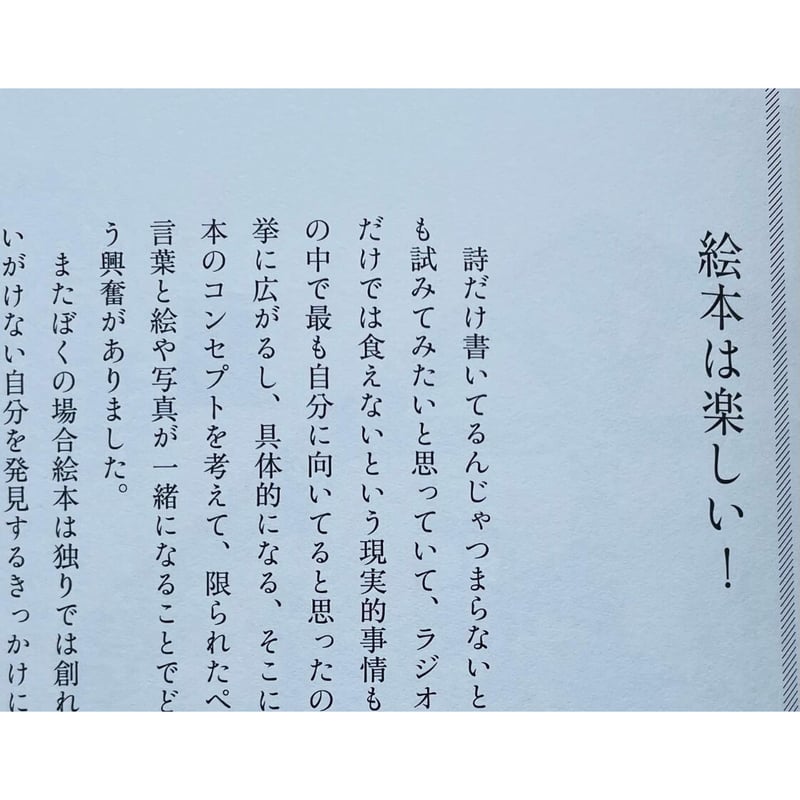 絵本は楽しい！
詩だけ書いてるんじゃつまらないと
も試みてみたいと思っていて、ラジオ
だけでは食えないという現実的事情も
の中で最も自分に向いてると思ったの
挙に広がるし、具体的になる、そこに
本のコンセプトを考えて、限られたペ
言葉と絵や写真が一緒になることでど
う興奮がありました。
またぼくの場合絵本は独りでは創れ
いがけない自分を発見するきっかけに